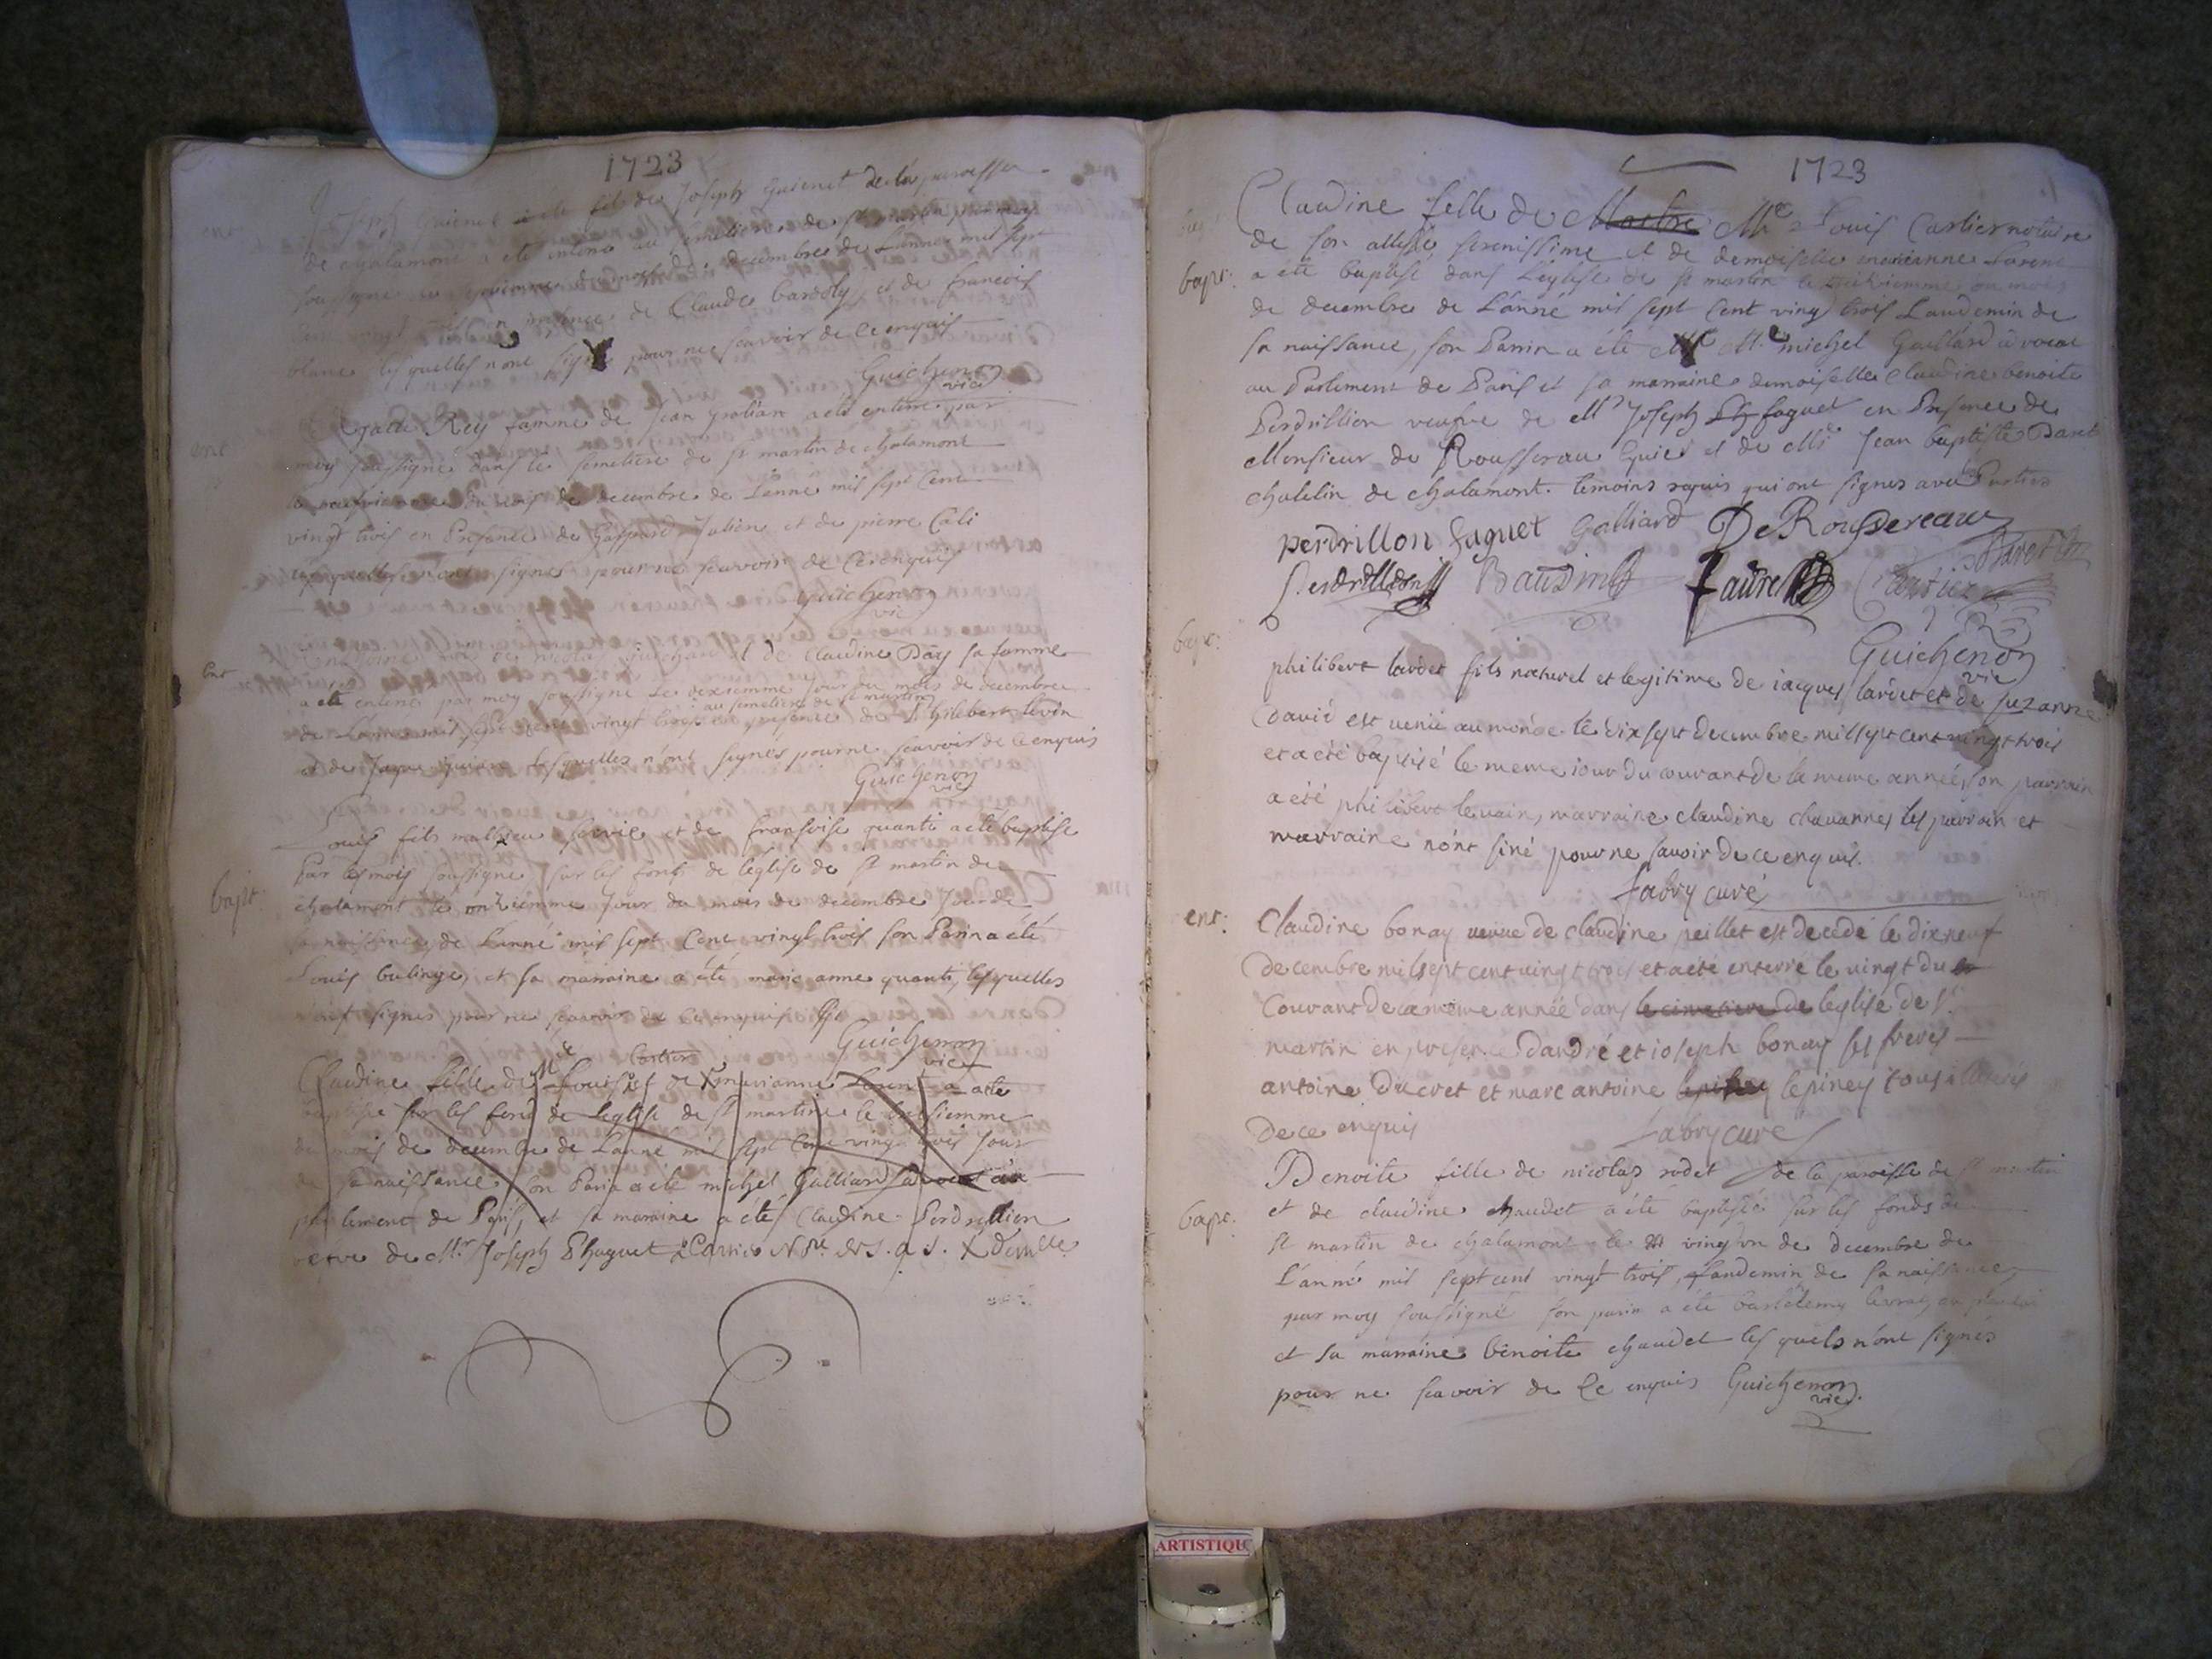 1723
Joseph Guienet fils de Joseph Guienet de la paroisse
ent
de chalamont a été enterré au semetiere de st martin par moy
soussigné du mois de decembre de L'année mil sept
cent vingt trois en presence de Claude bardoly et de francois
blanc lesquelles n'ont signé pour ne scavoir de ce enquis
Guichenon
vic
ent
Rey famme de Jean a été enterré par
moy soussigné dans le semetiere de st martin de chalamont
le neufviemme du mois de decembre de L'anné mil sept Cent
vingt trois en Presence de Gaspard Julien et de pierre Cali
lesquelles n'ont signés pour ne scavoir de Ce enquis
Guichenon
vic
ent
de nicolas guichard et de Claudine Day sa famme
a été enterré par moy soussigné Le dixiemme jour du mois de decembre
au semetiere de st martin
de L'anné mil sept cent vingt trois en presence de Philibert levin
et de Jaque lesquelles n'ont signés pour ne scavoir de ce enquis
Guichenon
vic
Louis fils mathieu et de franfoise quanti a été baptise
Par moy soussigné sur les fonts de l'eglise de st martin de
bapt:
chalamont le onziemme Jour du mois de decembre Jour de
sa naissance, de L'anné mil sept Cent vingt trois son Parin a été
Louis bulinge, et sa marraine a été marie anne quanti, lesquelles
n'ont signés pour ne scavoir de Ce enquis
Guichenon
vic
Me Cartier
Claudine fille de Louis et de X marianne Lorent a été
baptisée sur les fons de Leglise de st martin le treisiemme
du mois de decembre de L'anné mil sept Cent vingt trois jour
de sa naissance, son Parin a été michel Galliard avocat au
parlement de Paris, et sa maraine a été Claudine Perdrillion
veuve de Mr Joseph Phaguet Cartier Nre de S. a S. X demlle
1723
Claudine fille de Maitre Me Louis Cartier notaire
de son altesse serenissime et de demoiselle marianne Lorent
bapt:
a été baptisé dans L'eglise de st martin le treiziemme du mois
de decembre de L'anné mil sept Cent vingt trois Laudemin de
sa naissance, son Parrin a été Me michel Galliard avocat
au Parlement de Paris et sa marraine demoiselle Claudine benoite
Perdrillion veufve de Mr Joseph Ph faguet en Presence de
Monsieur de Rousserau et de Mr Jean baptiste Baret
chatelin de chalamont. temoins requis qui ont signes avec Parties
perdrillon faguet Galliard De Rousereau
Perdrillion Baudin faure Cartier Baret
Guichenon
vic
bapt:
philibert lardet fils naturel et legitime de iacques lardet et de suzanne
David est venu au monde le dix sept Decembre mil sept cent vingt trois
et a été baptisé le meme iour du courant de la meme année, son parrain
a été philibert levain, marraine claudine chavannes les parrain et
marraine n'ont siné pour ne savoir de ce enquis.
fabry curé
ent:
Claudine bonay veuve de claudine peillet est decedé le dix neuf
decembre mil sept cent vingt trois et a été enterré le vingt du
Courant de ca même année dans le cimetiere de leglise de st
martin en presence d'andré et ioseph bonay ses freres
antoine Ducret et marc antoine lepiney lepiney tous illiterés
de ce enquis
fabry curé
Benoite fille de nicolas rodet de la paroisse de st martin
bapt:
et de claudine chaudet a été baptisée sur les fonds de
st martin de chalamont le vingt un de decembre de
L'anné mil sept cent vingt trois, Laudemin de sa naissance,
par moy soussigné son parin a été bartelemy
et sa marraine benoite chaudet les quels n'ont signés
pour ne scavoir de Ce enquis Guichenon
vic.
ARTISTIQU